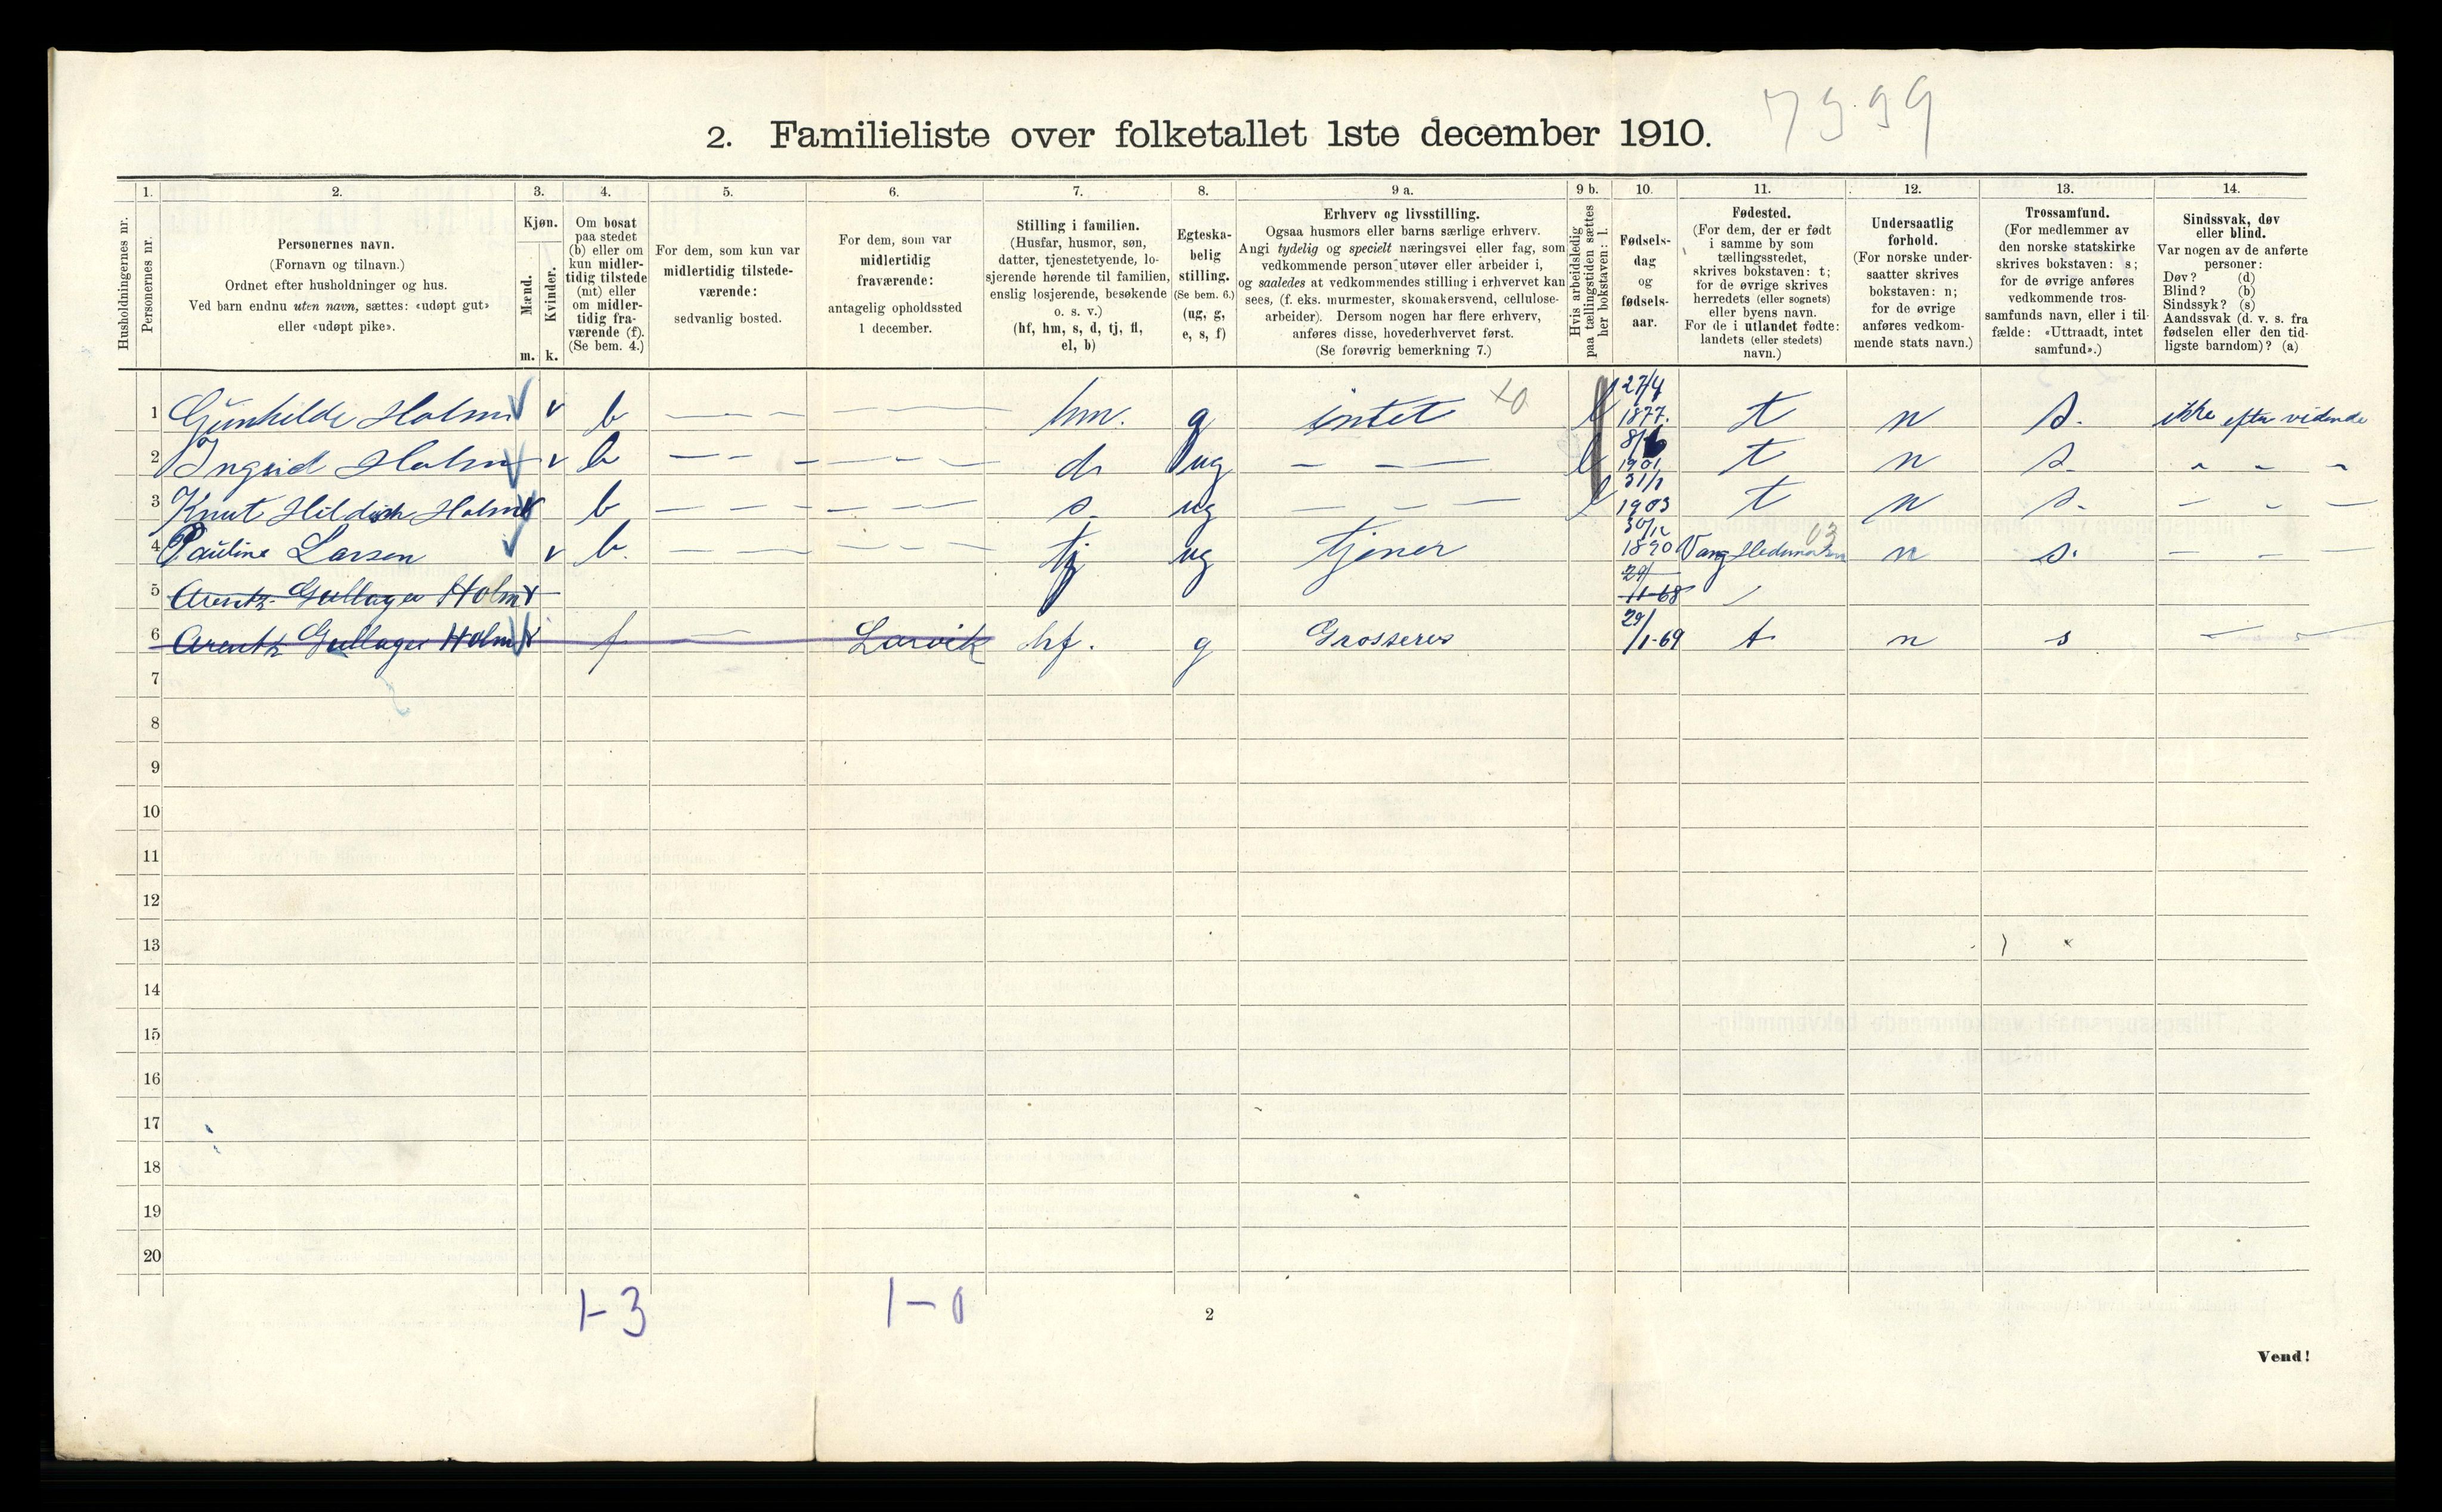 7999
2. Familieliste over folketallet 1ste december 1910.
Husholdningernes nr.
1.
Personernes nr.
2.
Personernes navn.
(Fornavn og tilnavn.)
Ordnet efter husholdninger og hus.
Ved barn endnu uten navn, sættes: «udøpt gut»
eller «udøpt pike».
3.
Kjøn.
Mænd.
Kvinder.
m. k.
4.
Om bosat
paa stedet
(b) eller om
kun midler-
tidig tilstede
(mt) eller
om midler-
tidig fra-
værende (f).
(Se bem. 4.)
5.
For dem, som kun var
midlertidig tilstede-
værende:
sedvanlig bosted.
6.
For dem, som var
midlertidig
fraværende:
antagelig opholdssted
1 december.
7.
Stilling i familien.
(Husfar, husmor, søn,
datter, tjenestetyende, lo-
sjerende hørende til familien,
enslig losjerende, besøkende
o. s. v.)
(hf, hm, s, d, tj, fl,
el, b)
8.
Egteska-
belig
stilling.
(Se bem. 6.)
(ug, g,
e, s, f)
9 a.
Erhverv og livsstilling.
Ogsaa husmors eller barns særlige erhverv.
Angi tydelig og specielt næringsvei eller fag, som
vedkommende person utøver eller arbeider i,
og saaledes at vedkommendes stilling i erhvervet kan
sees, (f. eks. murmester, skomakersvend, cellulose-
arbeider). Dersom nogen har flere erhverv,
anføres disse, hovederhvervet først.
(Se forøvrig bemerkning 7.)
9 b.
Hvis arbeidsledig
paa tællingstiden sættes
her bokstaven: l.
10.
Fødsels-
dag
og
fødsels-
aar.
11.
Fødested.
(For dem, der er født
i samme by som
tællingsstedet,
skrives bokstaven: t;
for de øvrige skrives
herredets (eller sognets)
eller byens navn.
For de i utlandet fødte:
landets (eller stedets)
navn.)
12.
Undersaatlig
forhold.
(For norske under-
saatter skrives
bokstaven: n;
for de øvrige
anføres vedkom-
mende stats navn.)
13.
Trossamfund.
(For medlemmer av
den norske statskirke
skrives bokstaven: s;
for de øvrige anføres
vedkommende tros-
samfunds navn, eller i til-
fælde: «Uttraadt, intet
samfund».)
14.
Sindssvak, døv
eller blind.
Var nogen av de anførte
personer:
Døv? (d)
Blind? (b)
Sindssyk? (s)
Aandssvak (d. v. s. fra
fødselen eller den tid-
ligste barndom)? (a)
1 Gunhilde Holm v b — — — — — — hm. g intet x0 l 27/4 1877. t n s. ikke efter vidende
2 Ingrid Holm v b — — — — — — d. ug — — — l 8/6 1901 t n s. " " "
3 Knut Hilditsch Holm v b — — — — — — s. ug — — — l 31/1 1903 t n s. — — —
4 Pauline Larsen v b. — — — — — — tj ug tjener 30/12 1890 Vang Hedemarken 03 n s. — — —
5 Arentz Gullager Holm v 29/11-68
6 Arentz Gullager Holm v f — Larvik hf. g Grosserer 29/1-69 t n s — —
7
8
9
10
11
12
13
14
15
16
17
18
19
20
1-3 1-0
2
Vend!